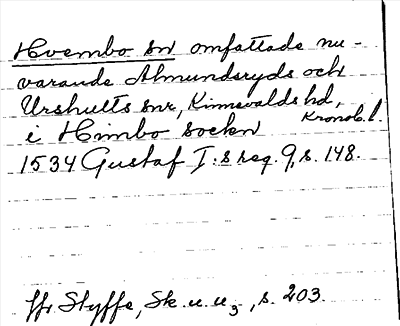 Hvembo sn omfattade nu-
varande Almundsryds och
Urshults snr, Kinnevalds hd,
Kronob. l.
i Himbo sockn
1534 Gustaf I:s reg. 9, s. 148.
Jfr Styffe, Sk. u. u3, s. 203.